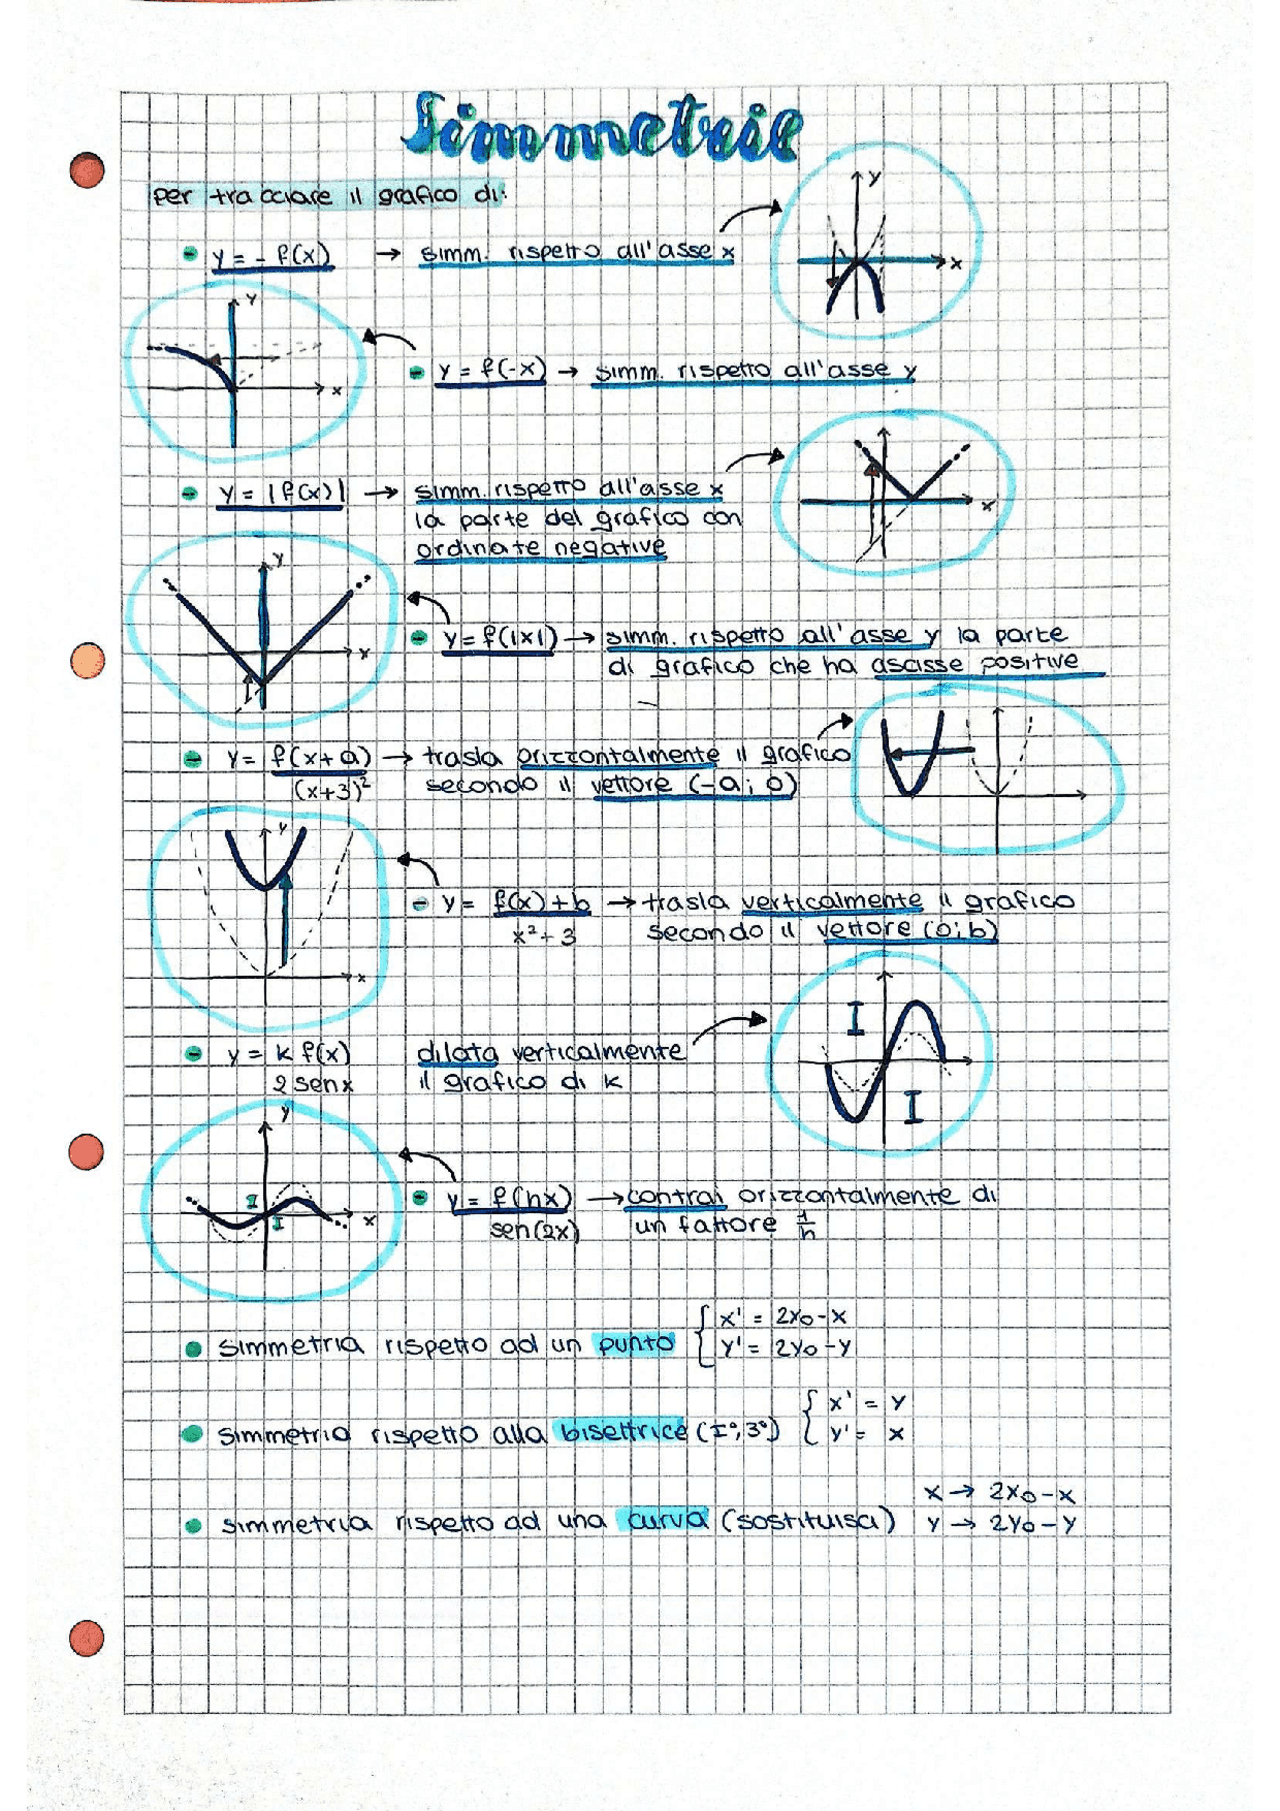 Simmetrie
per tracciare il grafico di:
y = - f(x) → simm. rispetto all'asse x
y
x
y
x
y = f(-x) → simm. rispetto all'asse y
y = |f(x)| → simm. rispetto all'asse x
la parte del grafico con
ordinate negative
x
y
x
y = f(|x|) → simm. rispetto all'asse y la parte
di grafico che ha ascisse positive
y = f(x+a) → trasla orizzontalmente il grafico
(x+3)² secondo il vettore (-a; 0)
y
x
y = f(x) + b → trasla verticalmente il grafico
x² + 3 secondo il vettore (0; b)
y = k f(x) dilata verticalmente
2 sen x il grafico di k
I
I
y
x
I
I
y = f(hx) → contrai orizzontalmente di
sen(2x) un fattore 1/h
simmetria rispetto ad un punto { x' = 2x₀-x
y' = 2y₀-y
simmetria rispetto alla bisettrice (I°, 3°) { x' = y
y' = x
simmetria rispetto ad una curva (sostituisci) x → 2x₀-x
y → 2y₀-y